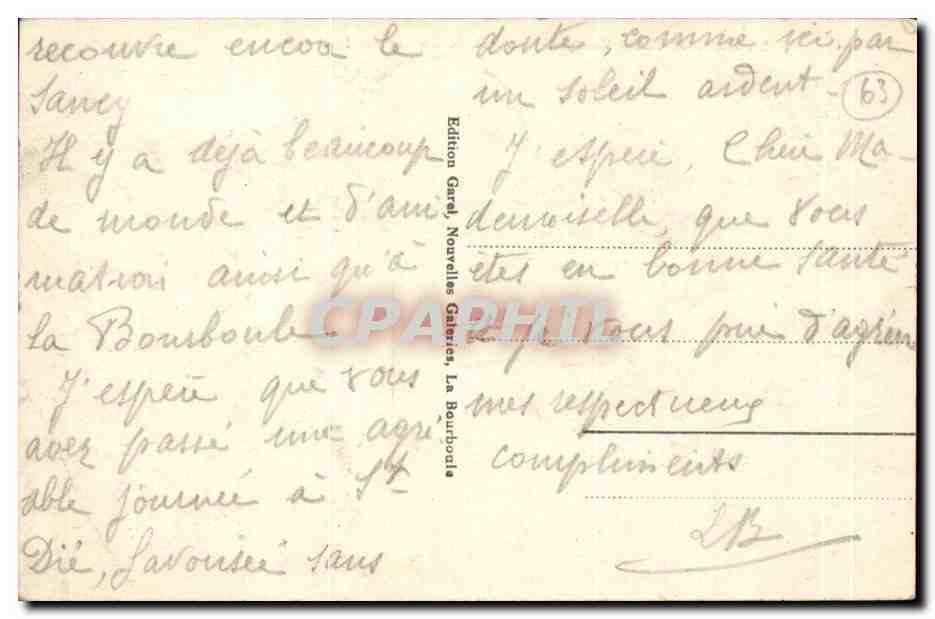 recouvre encore le
Sancy
Il y a déjà beaucoup
de monde et d'ani
mation ainsi qu'à
La Bourboule
J'espère que vous
avez passé une agré
able journée à St
Dié, favorisée sans
Edition Garel, Nouvelles Galeries, La Bourboule
doute, comme ici par
un soleil ardent -
63
J'espère, Chère Ma-
demoiselle, que vous
êtes en bonne santé
& je vous prie d'agréer
mes respectueux
compliments
LB
CPAPHIL